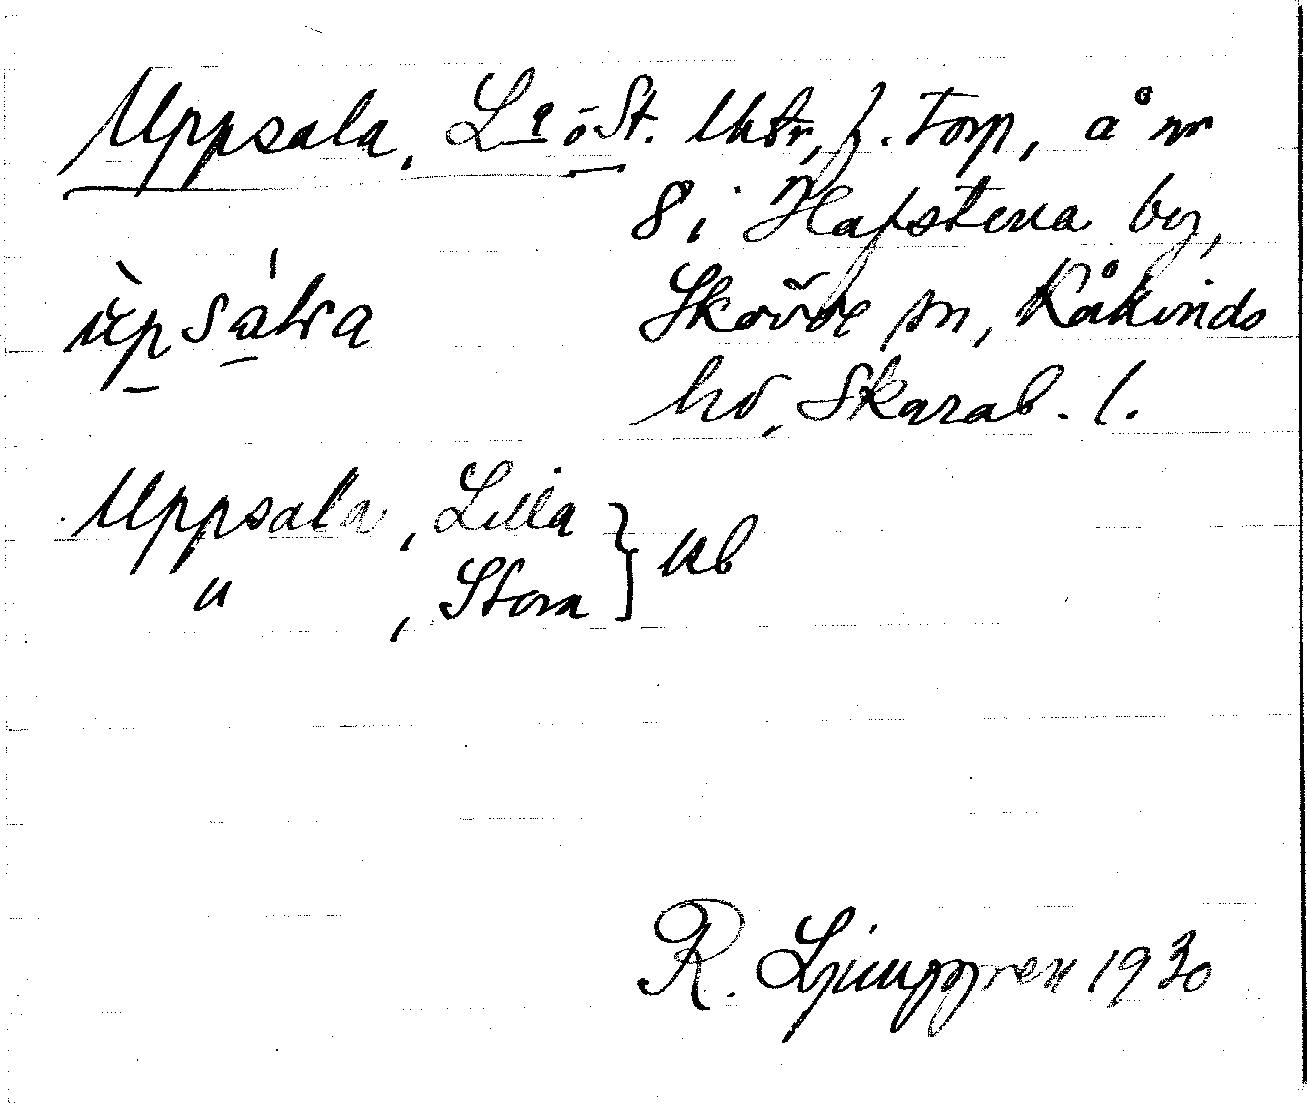 Uppsala, La o St. lhtr, f. torp, å nr
8 i Hafstena by,
üpsálva
Skövde sn, Kåkinds
hd, Skarab. l.
Uppsala, Lilla
" , Stora
} kb
R. Ljunggren 1930